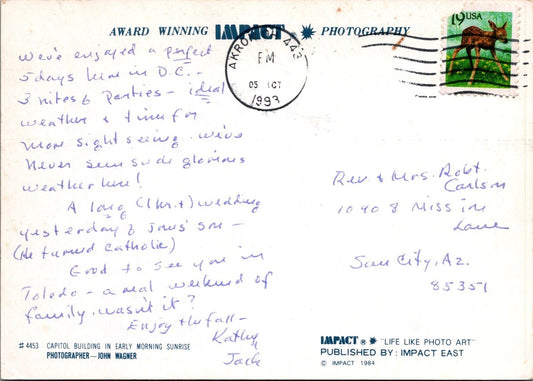 AWARD WINNING IMPACT PHOTOGRAPHY
19 USA
AKRON 443
PM
05 OCT
1993
We've enjoyed a perfect
5 days here in D.C. -
3 nites of Parties - ideal
weather & time for
more sight seeing. We've
never seen such glorious
weather here!
A long (1 hr. +) wedding
yesterday of son -
(He turned Catholic)
Good to see you in
Toledo - a real weekend of
family, wasn't it?
Enjoy the fall -
Kathy
Jack
Rev & Mrs. Robt.
Carlson
10408 Mission
Lane
Sun City, Az.
85351
#4453 CAPITOL BUILDING IN EARLY MORNING SUNRISE
PHOTOGRAPHER—JOHN WAGNER
IMPACT "LIFE LIKE PHOTO ART"
PUBLISHED BY: IMPACT EAST
© IMPACT 1984